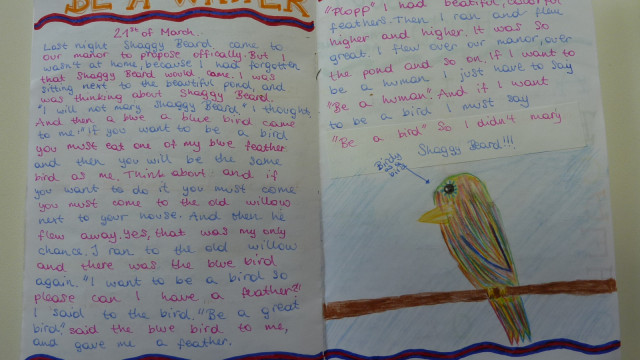 BE A WRITER
21st of March.
Last night Shaggy Beard came to
our manor to propose offically. But I
wasn't at home, because I had forgotten
that Shaggy Beard would come. I was
sitting next to the beautiful pond, and
was thinking about Shaggy Beard.
"I will not mary Shaggy Beard" I thought
And then a blue a blue bird came
to me:" If you want to be a bird
you must eat one of my blue feather
and then you will be the same
bird as me. Think about and if
you want to do it you must come
you must come to the old willow
next to your house. And then he
flew away. Yes, that was my only
chance. I ran to the old willow
and there was the blue bird
again. "I want to be a bird so
please can I have a feather?!"
I said to the bird. "Be a great
bird" said the blue bird to me,
and gave me a feather.
"Plopp" I had beautiful, colorful
feathers. Then I ran and flew
higher and higher. It was so
great. I flew over our manor, over
the pond and so on. If I want to
be a human I just have to say
"Be a human". And if I want
to be a bird I must say
"Be a bird" So I didn't mary
Shaggy Beard!!!
Birdy
as a
bird